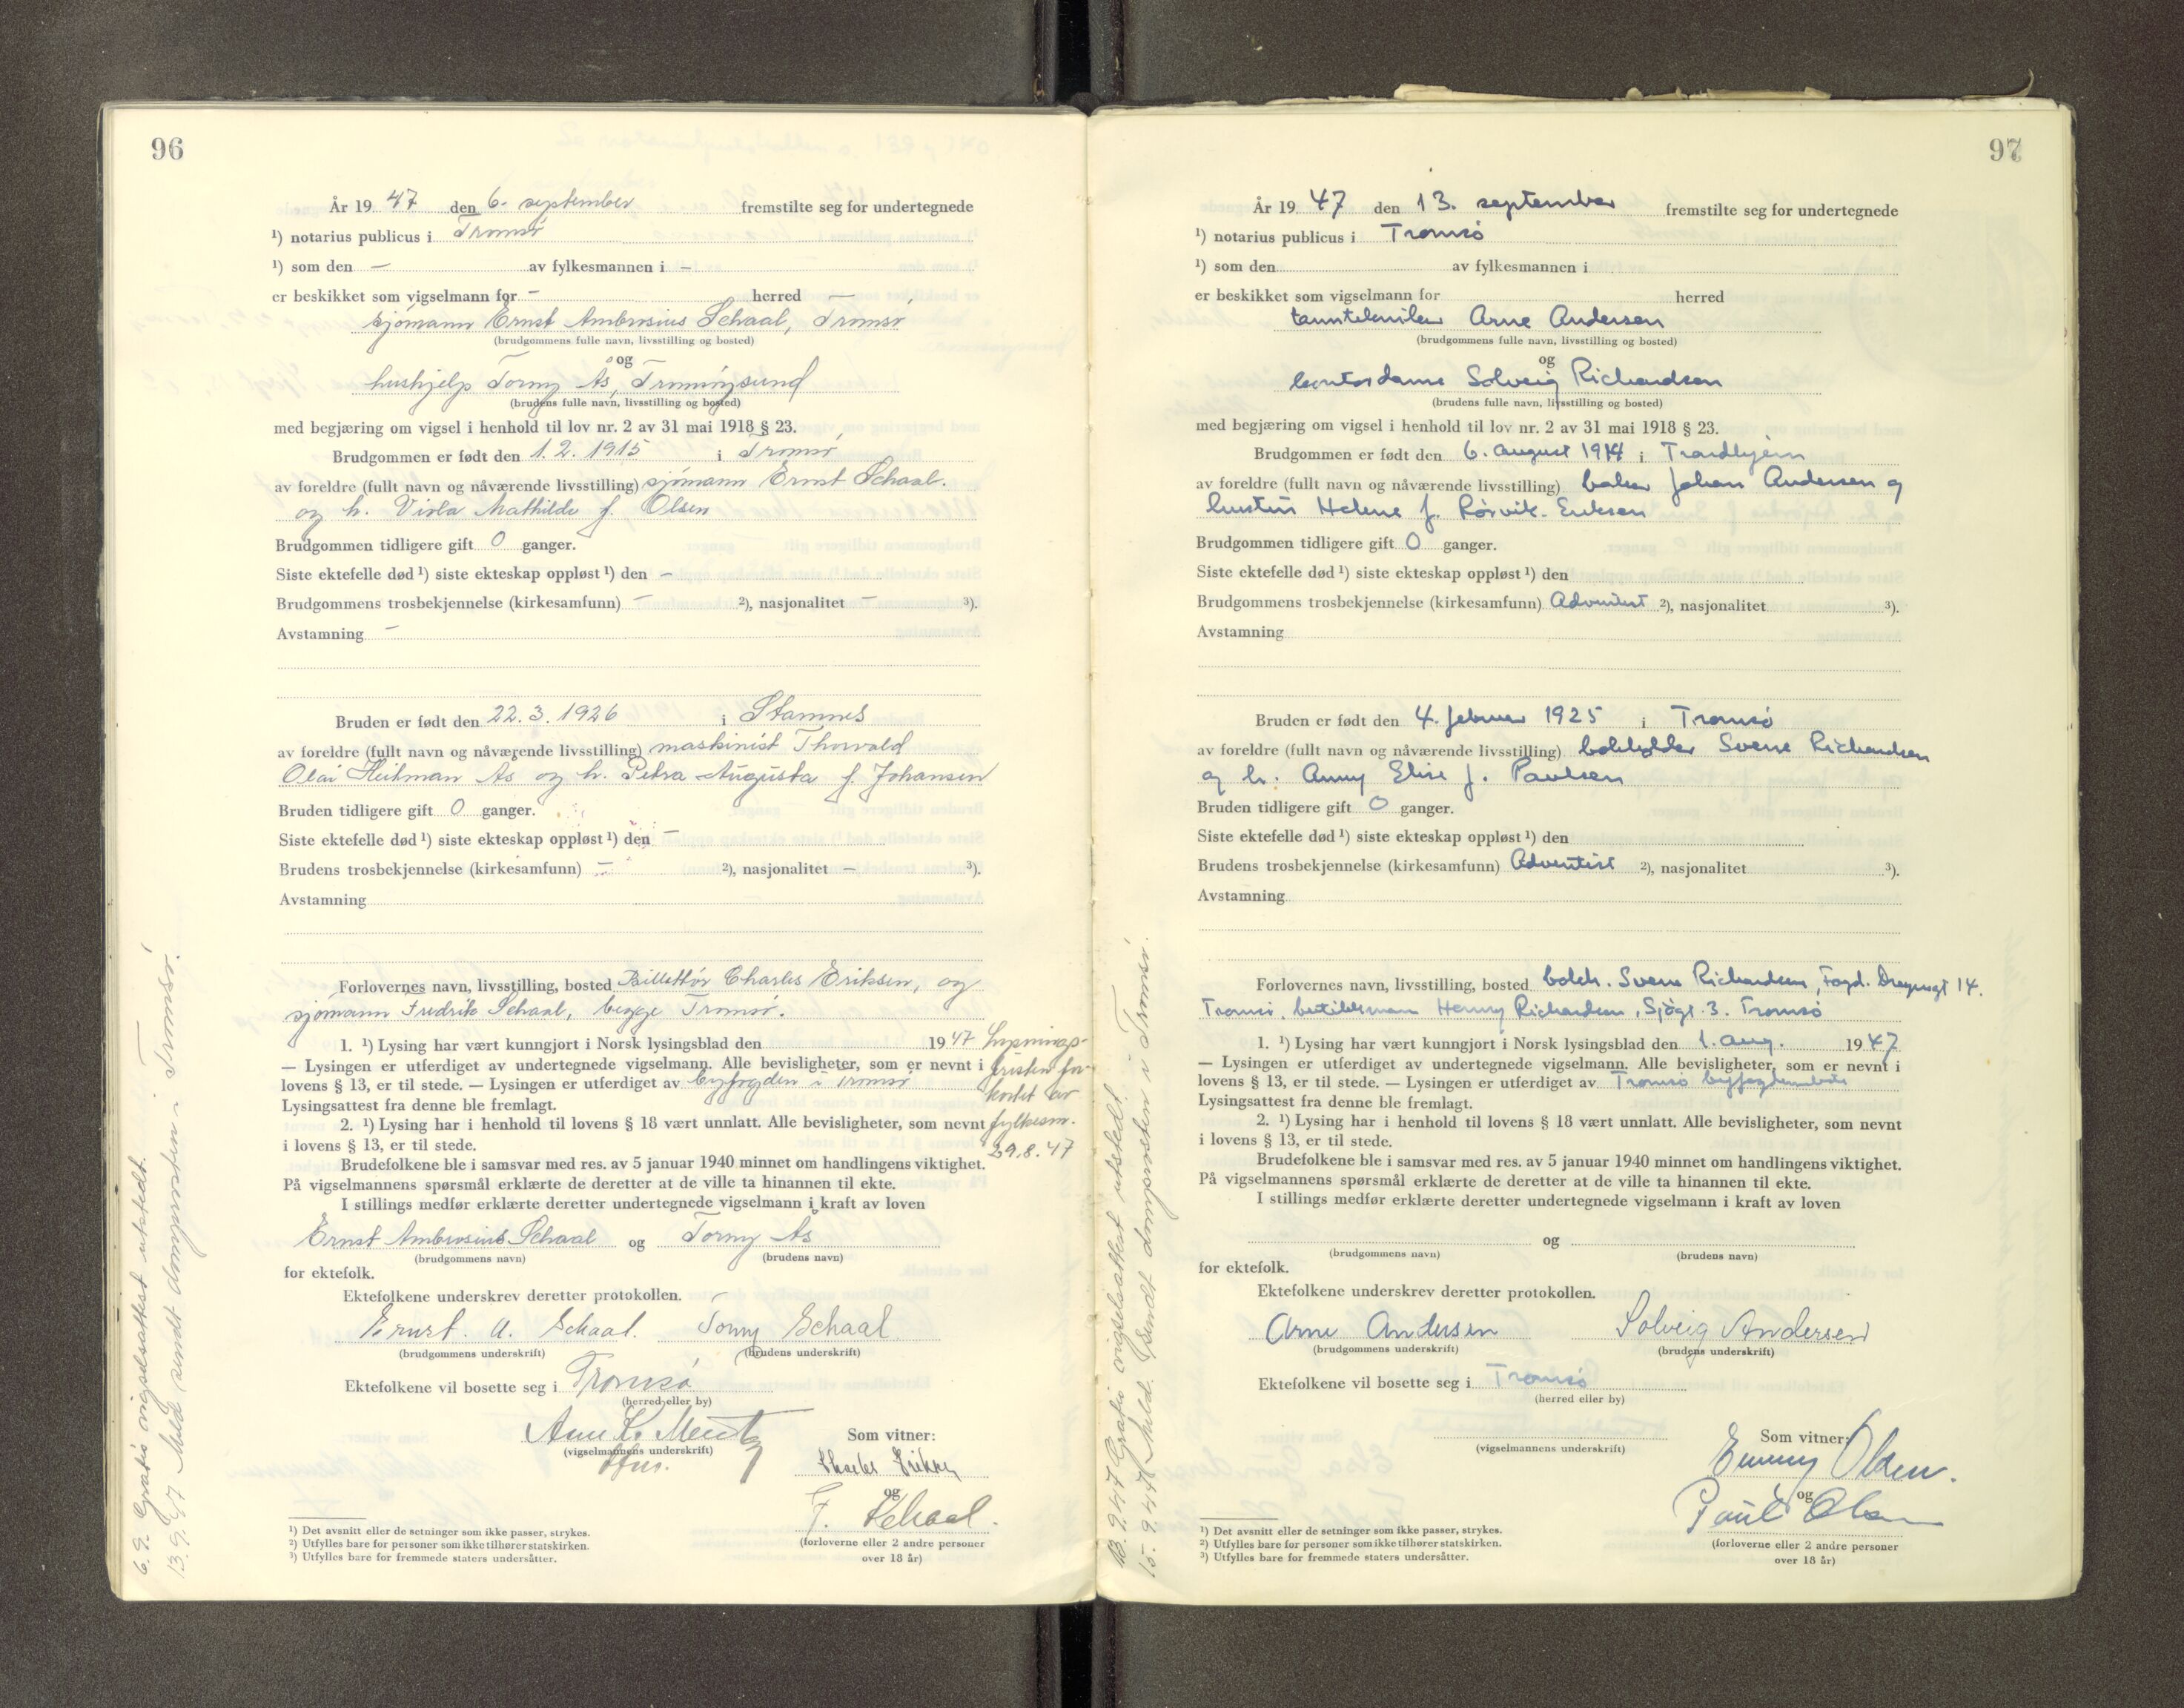 96
År 19 47 den 6. september fremstilte seg for undertegnede
¹) notarius publicus i Tromsø
¹) som den — av fylkesmannen i —
er beskikket som vigselmann for — herred
sjømann Ernst Ambrosius Schaal, Tromsø
(brudgommens fulle navn, livsstilling og bosted)
og
hushjelp Tormy Ås, Tromøysund
(brudens fulle navn, livsstilling og bosted)
med begjæring om vigsel i henhold til lov nr. 2 av 31 mai 1918 § 23.
Brudgommen er født den 1. 2. 1915 i Tromsø
av foreldre (fullt navn og nåværende livsstilling) sjømann Ernst Schaal.
og h. Viola Mathilde f. Olsen
Brudgommen tidligere gift 0 ganger.
Siste ektefelle død ¹) siste ekteskap oppløst ¹) den —
Brudgommens trosbekjennelse (kirkesamfunn) — ²), nasjonalitet — ³).
Avstamning —
Bruden er født den 22. 3. 1926 i Stamnes
av foreldre (fullt navn og nåværende livsstilling) maskinist Thorvald
Olai Heitman Ås og h. Petra Augusta f. Johansen
Bruden tidligere gift 0 ganger.
Siste ektefelle død ¹) siste ekteskap oppløst ¹) den —
Brudens trosbekjennelse (kirkesamfunn) — ²), nasjonalitet — ³).
Avstamning
Forlovernes navn, livsstilling, bosted Billettør Charles Eriksen, og
sjømann Fredrik Schaal, begge Tromsø.
1. ¹) Lysing har vært kunngjort i Norsk lysingsblad den 19 47
— Lysingen er utferdiget av undertegnede vigselmann. Alle bevisligheter, som er nevnt i
lovens § 13, er til stede. — Lysingen er utferdiget av byfogden i Tromsø
Lysingsattest fra denne ble fremlagt.
2. ¹) Lysing har i henhold til lovens § 18 vært unnlatt. Alle bevisligheter, som nevnt
i lovens § 13, er til stede.
Lysnings-
fristen for-
kortet av
fylkesm.
29.8.47
Brudefolkene ble i samsvar med res. av 5 januar 1940 minnet om handlingens viktighet.
På vigselmannens spørsmål erklærte de deretter at de ville ta hinannen til ekte.
I stillings medfør erklærte deretter undertegnede vigselmann i kraft av loven
Ernst Ambrosius Schaal og Tormy Ås
(brudgommens navn) (brudens navn)
for ektefolk.
Ektefolkene underskrev deretter protokollen.
Ernst. A. Schaal. Tormy Schaal
(brudgommens underskrift) (brudens underskrift)
Ektefolkene vil bosette seg i Tromsø
(herred eller by)
(vigselmannens underskrift)
Som vitner:
Charles Eriksen
og
F. Schaal.
(forloverne eller 2 andre personer
over 18 år)
¹) Det avsnitt eller de setninger som ikke passer, strykes.
²) Utfylles bare for personer som ikke tilhører statskirken.
³) Utfylles bare for fremmede staters undersåtter.
6.9. Gratis vigselsattest utstedt.
13.9.47 Meld. sendt domprosten i Tromsø.
97
År 19 47 den 13. september fremstilte seg for undertegnede
¹) notarius publicus i Tromsø
¹) som den av fylkesmannen i
er beskikket som vigselmann for herred
tanntekniker Arne Andersen
(brudgommens fulle navn, livsstilling og bosted)
og
kontordame Solveig Richardsen
(brudens fulle navn, livsstilling og bosted)
med begjæring om vigsel i henhold til lov nr. 2 av 31 mai 1918 § 23.
Brudgommen er født den 6. august 1914 i Trondhjem
av foreldre (fullt navn og nåværende livsstilling) baker Johan Andersen og
hustru Helene f. Rørvik-Eriksen
Brudgommen tidligere gift 0 ganger.
Siste ektefelle død ¹) siste ekteskap oppløst ¹) den
Brudgommens trosbekjennelse (kirkesamfunn) Adventist ²), nasjonalitet ³).
Avstamning
Bruden er født den 4. februar 1925 i Tromsø
av foreldre (fullt navn og nåværende livsstilling) bokholder Sverre Richardsen
og h. Anny Elise f. Paulsen
Bruden tidligere gift 0 ganger.
Siste ektefelle død ¹) siste ekteskap oppløst ¹) den
Brudens trosbekjennelse (kirkesamfunn) Adventist ²), nasjonalitet ³).
Avstamning
Forlovernes navn, livsstilling, bosted bokh. Sverre Richardsen, Fogd. Dreyersgt 14.
Tromsø, Henry Richardsen, Sjøgt. 3. Tromsø
1. ¹) Lysing har vært kunngjort i Norsk lysingsblad den 1. aug. 19 47
— Lysingen er utferdiget av undertegnede vigselmann. Alle bevisligheter, som er nevnt i
lovens § 13, er til stede. — Lysingen er utferdiget av Tromsø byfogdembete
Lysingsattest fra denne ble fremlagt.
2. ¹) Lysing har i henhold til lovens § 18 vært unnlatt. Alle bevisligheter, som nevnt
i lovens § 13, er til stede.
Brudefolkene ble i samsvar med res. av 5 januar 1940 minnet om handlingens viktighet.
På vigselmannens spørsmål erklærte de deretter at de ville ta hinannen til ekte.
I stillings medfør erklærte deretter undertegnede vigselmann i kraft av loven
og
(brudgommens navn) (brudens navn)
for ektefolk.
Ektefolkene underskrev deretter protokollen.
Arne Andersen Solveig Andersen
(brudgommens underskrift) (brudens underskrift)
Ektefolkene vil bosette seg i Tromsø
(herred eller by)
(vigselmannens underskrift)
Som vitner:
Emmy Olsen.
og
Paul Olsen
(forloverne eller 2 andre personer
over 18 år)
¹) Det avsnitt eller de setninger som ikke passer, strykes.
²) Utfylles bare for personer som ikke tilhører statskirken.
³) Utfylles bare for fremmede staters undersåtter.
13.9.47 Gratis vigselsattest utstedt.
15.9.47 Meld. sendt domprosten i Tromsø.